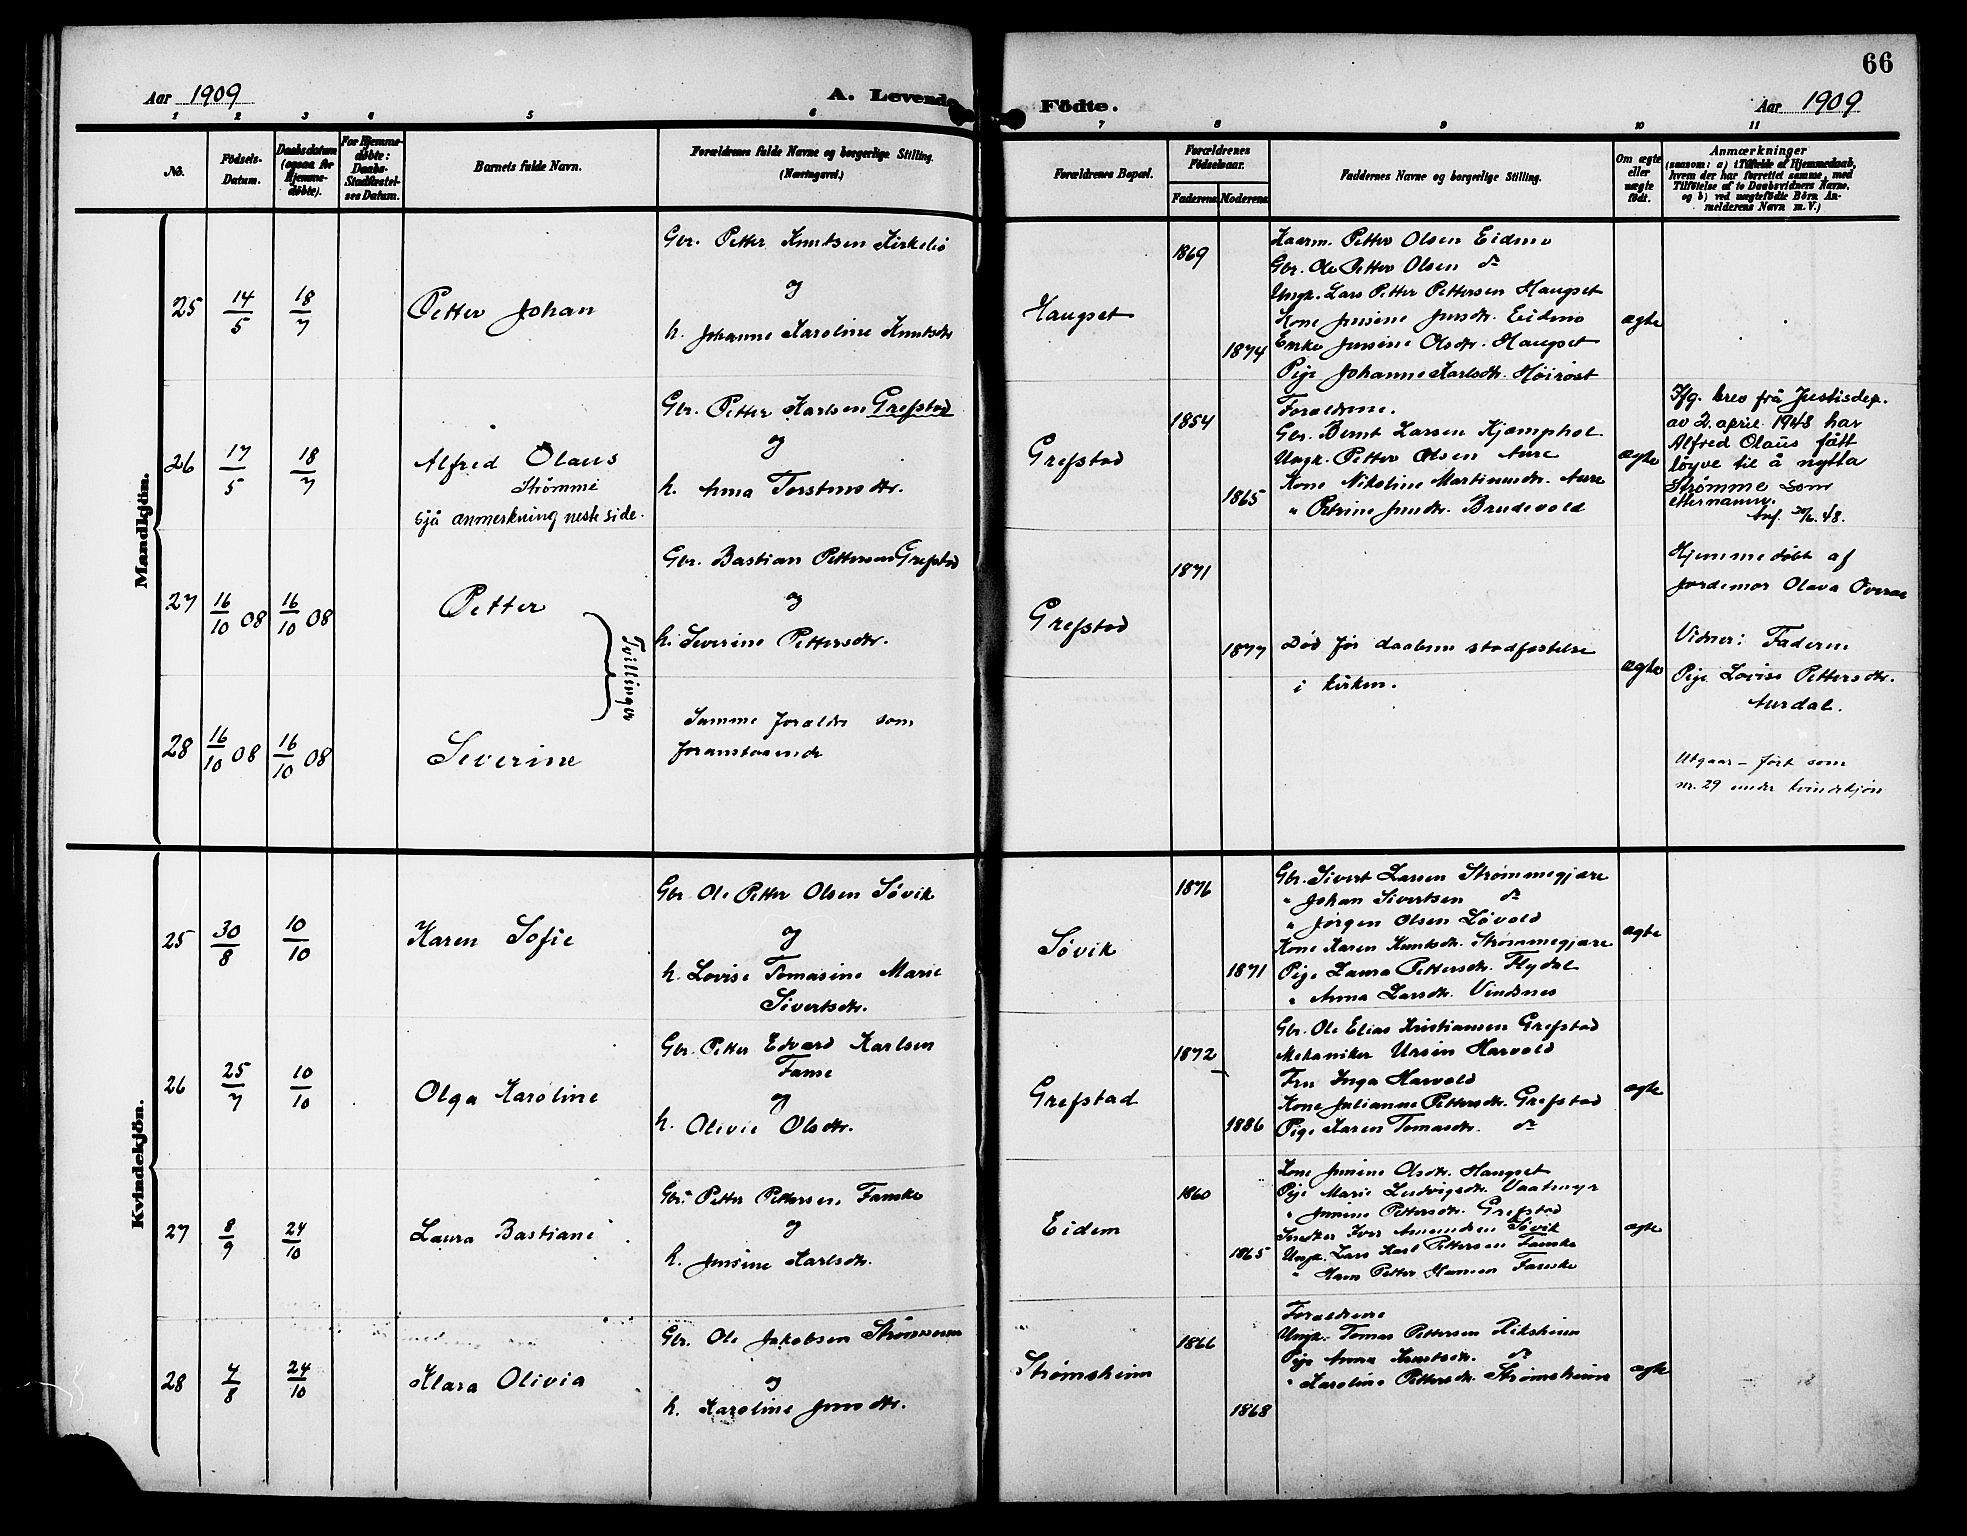 66
Aar 1909 A. Levende Födte. Aar 1909
1 2 3 4 5 6 7 8 9 10 11
No.
Födsels-
Datum.
Daabsdatum
(ogsaa for
Hjemme-
døbte).
For Hjemme-
døbte:
Daabs-
Stadfæstel-
ses Datum.
Barnets fulde Navn.
Forældrenes fulde Navne og borgerlige Stilling.
(Næringsvei.)
Forældrenes Bopæl.
Forældrenes
Födselsaar.
Faderens Moderens
Faddernes Navne og borgerlige Stilling.
Om ægte
eller
uægte
født.
Anmærkninger
(saasom: a) i Tilfælde af Hjemmedaab,
hvem der har forrettet samme, med
Tilföielse af to Daabsvidners Navne,
og b) ved uægtefödte Börn An-
melderens Navn m. V.)
Mandkjön.
25
14/5
18/7
Petter Johan
Gbr. Petter Knutsen Kirkebø
og
h. Johanne Karoline Knutsdtr.
Haugset
1869
1874
Kaarm. Petter Olsen Eidmo
Gbr. Ole Petter Olsen do
Ungk. Lars Petter Pettersen Haugset
Kone Jensine Jensdtr. Eidmo
Enke Jensine Olsdtr. Haugset
Pige Johanne Karlsdtr. Høirøst
ægte
26
17/5
18/7
Alfred Olaus
Strømme
sjå anmerkning neste side.
Gbr. Petter Karlsen Grefstad
og
h. Anna Torstensdtr.
Grefstad
1854
1865
Forældrene.
Gbr. Bernt Larsen Kjæmphol
Ungk. Petter Olsen Aure
Kone Nikoline Martinusdtr. Aure
" Petrine Jensdtr. Brudevold
ægte
Ifg. brev frå Justisdep.
av 2. april 1948 har
Alfred Olaus fått
løyve til å nytta
Strømme som
etternamn.
27
16/10 08
16/10 08
Petter
Tvillinger
Gbr. Bastian Pettersen Grefstad
og
h. Severine Pettersdtr.
Grefstad
1871
1877
Død før daabens stadfæstelse
i kirken.
ægte
Hjemmedøbt af
Jordemor Olava Overaa
Vidner: Faderen
Pige Lovise Pettersdtr.
Aurdal.
28
16/10 08
16/10 08
Severine
Samme forældre som
foranstaaende
Utgaar – ført som
nr. 29 under kvindekjøn
Kvindekjön.
25
30/8
10/10
Karen Sofie
Gbr Ole Petter Olsen Søvik
og
h. Lovise Tomasine Marie
Sivertsdtr.
Søvik
1876
1871
Gbr. Sivert Larsen Strømmegjære
" Johan Sivertsen do
" Jørgen Olsen Løvold
Kone Karen Knutsdtr. Strømmegjære
Pige Laura Pettersdtr. Flydal
" Anna Larsdtr. Vindsnes
ægte
26
25/7
10/10
Olga Karoline
Gbr. Petter Edvard Karlsen
og
h. Olivie Olsdtr.
Grefstad
1872
1886
Gbr. Ole Elias Kristiansen Grefstad
Mekaniker Ursin Harvold
Fru Inga Harvold
Kone Julianne Pettersdtr. Grefstad
Pige Karen Tomasdtr. do
ægte
27
8/9
24/10
Laura Bastiane
Gbr. Petter Pettersen Famske
og
h. Jensine Karlsdtr.
Eidem
1860
1865
Kone Jensine Olsdtr. Haugset
Pige Marie Ludvigsdtr. Vaatmyr
" Jensine Pettersdtr. Grefstad
Iver Amundsen Søvik
Ungk. Lars Karl Pettersen Famske
" Hans Petter Hansen Famske
ægte
28
7/8
24/10
Klara Olivia
Gbr. Ole Jakobsen Strømmen
og
h. Karoline Jensdtr.
Strømsheim
1866
1868
Forældrene
Ungk. Tomas Pettersen Riksheim
Pige Anna Knutsdtr. do
" Karoline Pettersdtr. Strømsheim
ægte